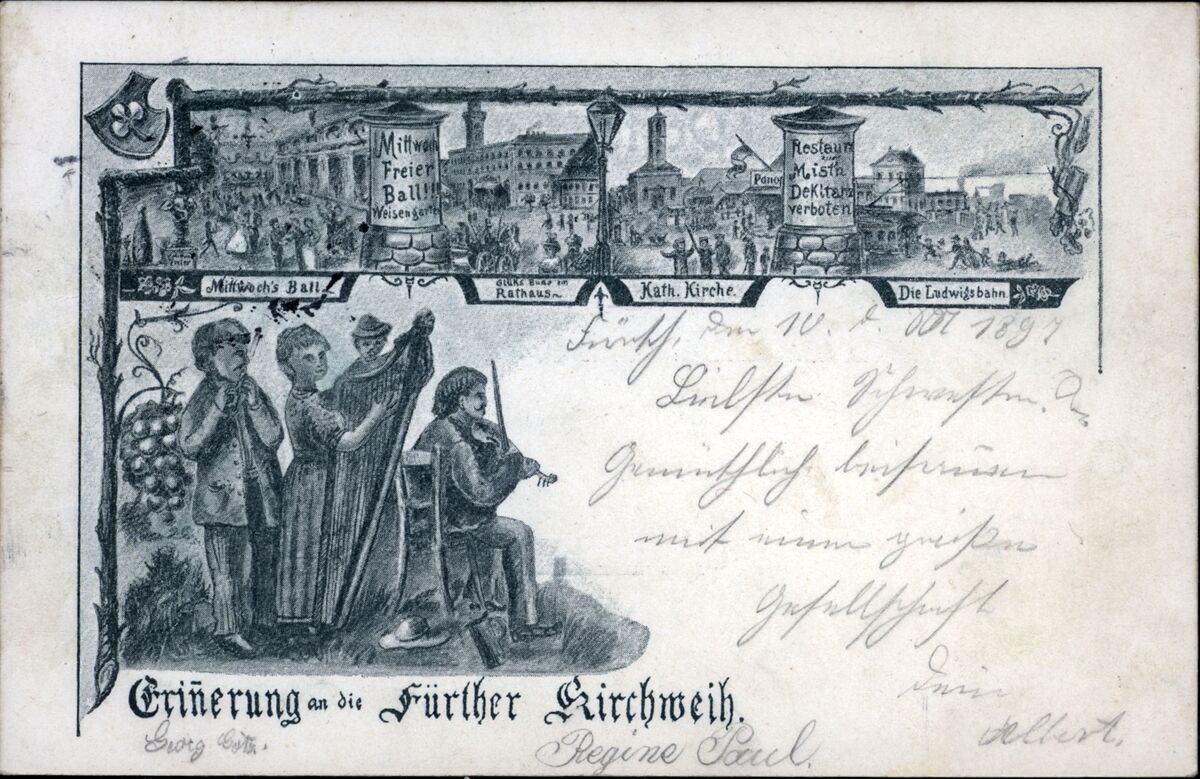 Mittwoch
Freier
Ball!!
Weisengarten
Panop
Restaur
zur
Mistn
Dekltarz
verboten
Mittwoch's Ball.
Glüks Bude im
Rathaus
Kath. Kirche.
Die Ludwigsbahn.
Fürth, den 10. d. Okt 1897
Liebste Schwester.
Gemüthlich beisamen
mit einer großen
Gesellschaft
Dein
Albert.
Eriñerung an die Fürther Kirchweih.
Georg
Regine Paul.